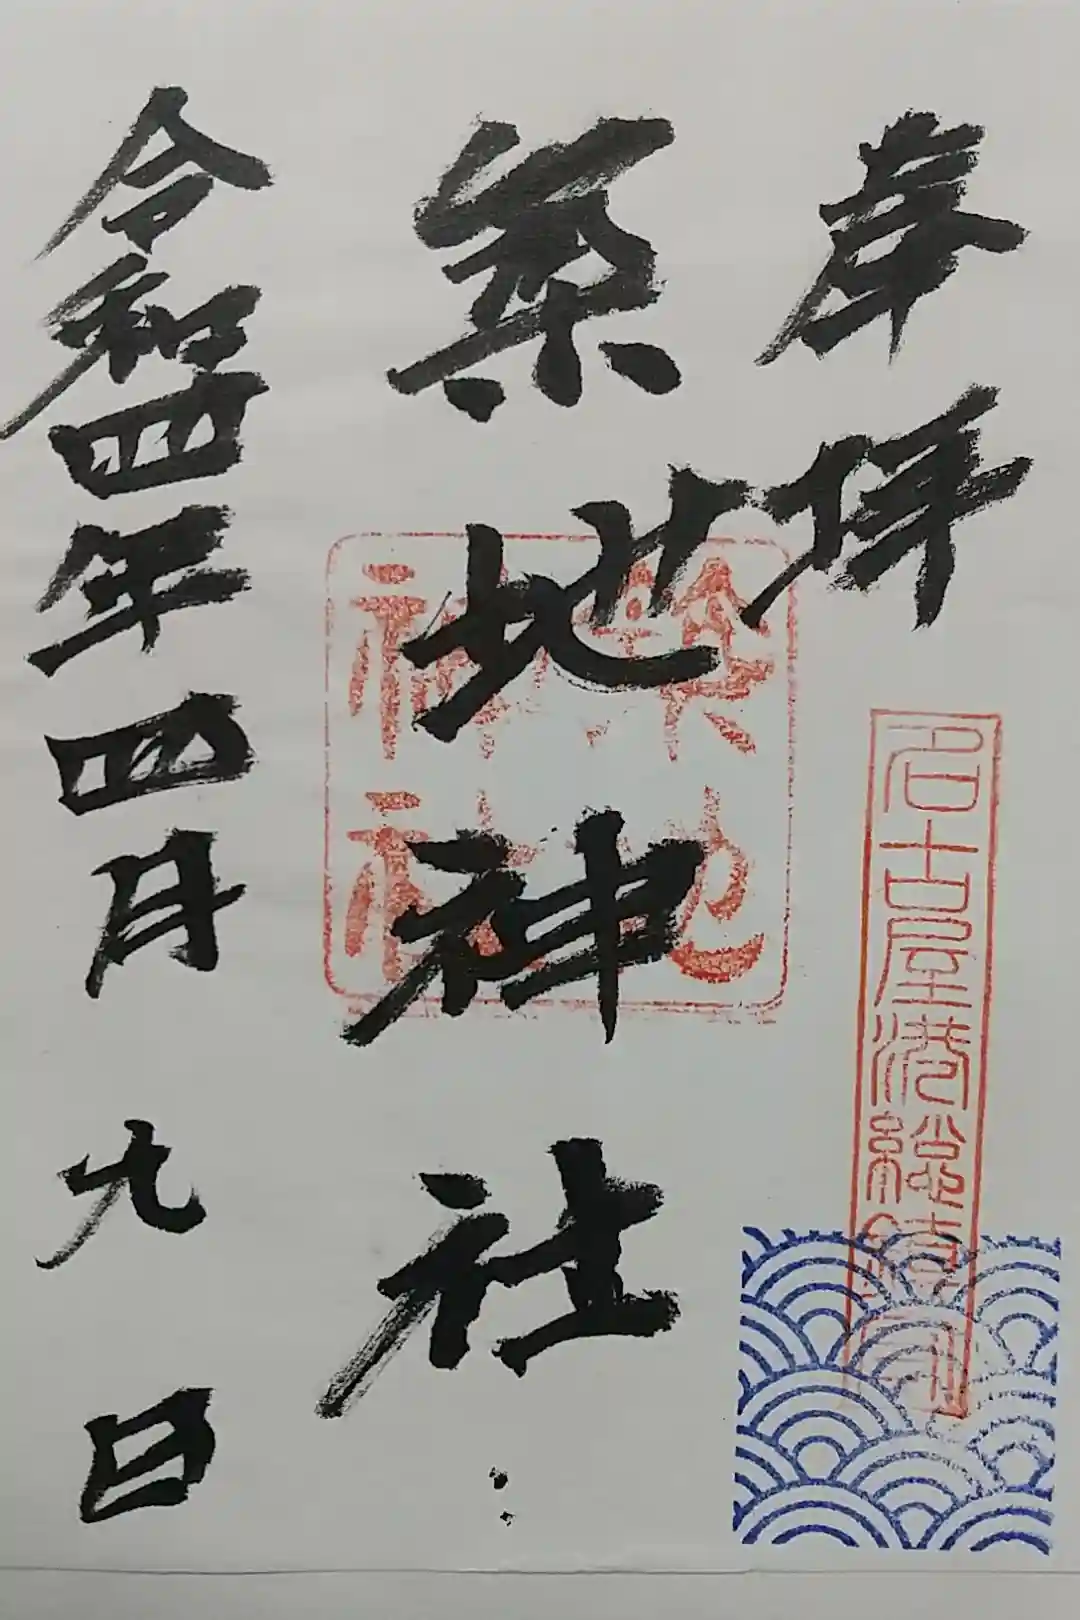 奉拝
名古屋港総鎮守
築地神社
築地
神社
令和四年四月九日